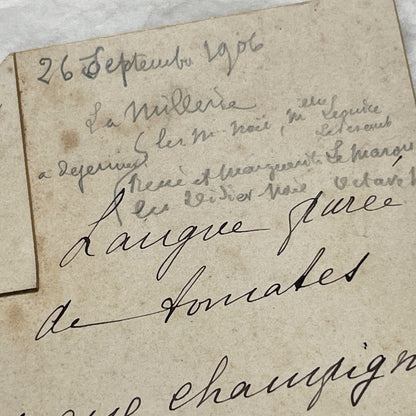 26 Septembre 1906
La Millerie
les M. Noël, Melle
à déjeuner
René et Marguerite Le Marqu
les Didier Noël Octave
Langue purée
de tomates
champign